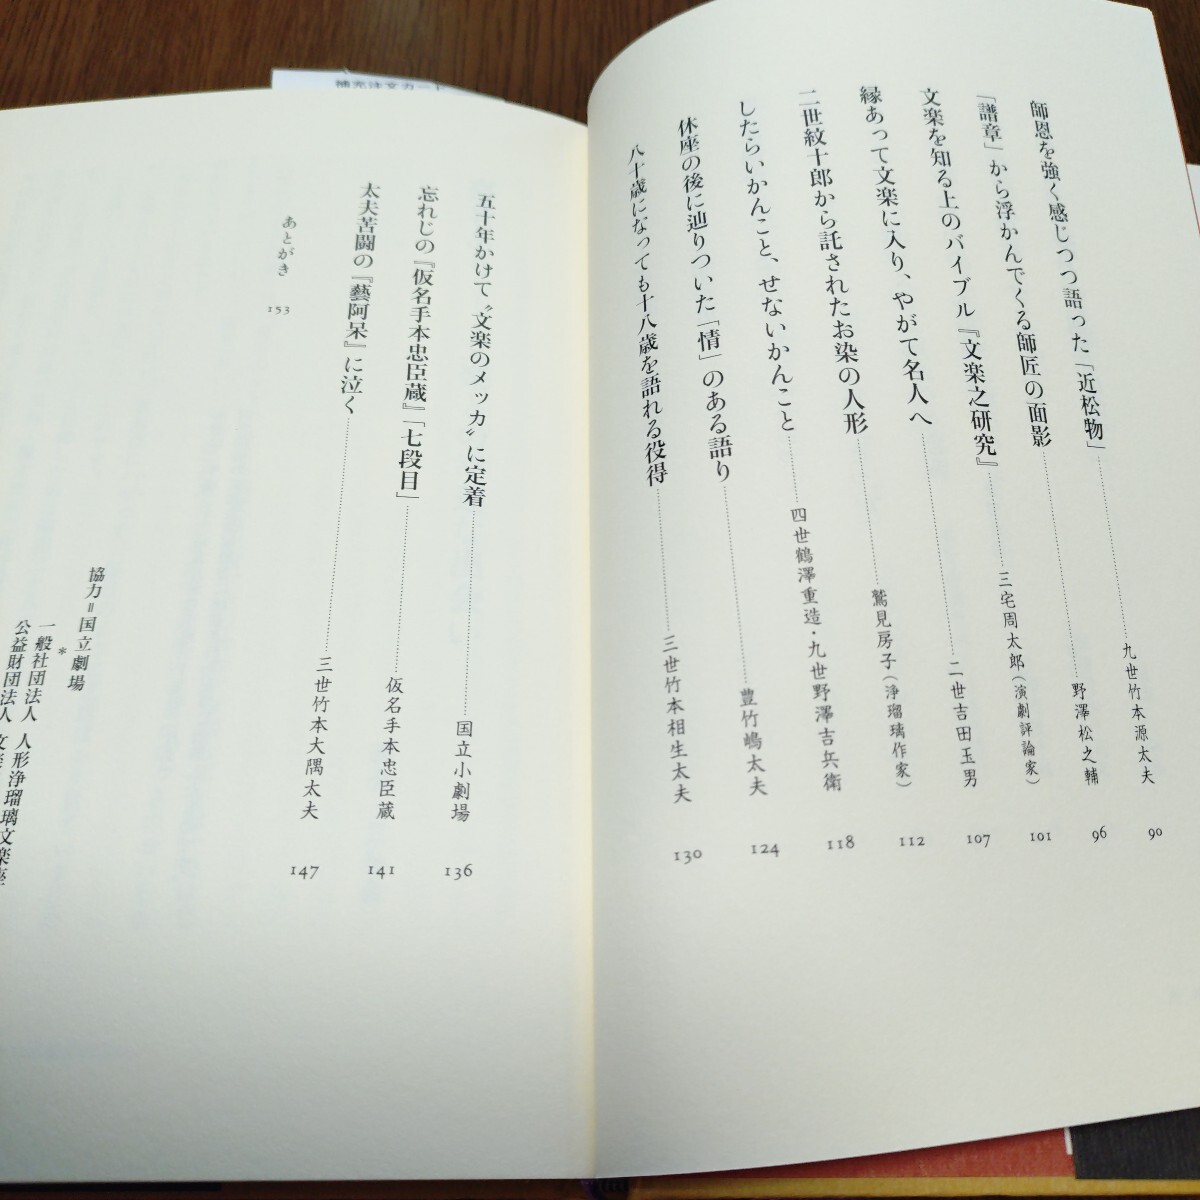 師恩を強く感じつつ語った「近松物」 九世竹本源太夫 90
「譜章」から浮かんでくる師匠の面影 野澤松之輔 96
文楽を知る上のバイブル『文楽之研究』 三宅周太郎（演劇評論家） 101
縁あって文楽に入り、やがて名人へ 二世吉田玉男 107
二世紋十郎から託されたお染の人形 鷲見房子（浄瑠璃作家） 112
したらいかんこと、せないかんこと 四世鶴澤重造・九世野澤吉兵衛 118
休座の後に辿りついた「情」のある語り 豊竹嶋太夫 124
八十歳になっても十八歳を語れる役得 三世竹本相生太夫 130
五十年かけて〝文楽のメッカ〟に定着 国立小劇場 136
忘れじの『仮名手本忠臣蔵』「七段目」 仮名手本忠臣蔵 141
太夫苦闘の『藝阿呆』に泣く 三世竹本大隅太夫 147
あとがき 153
協力＝国立劇場
＊
一般社団法人 人形浄瑠璃文楽座
公益財団法人 文楽
補充注文カード